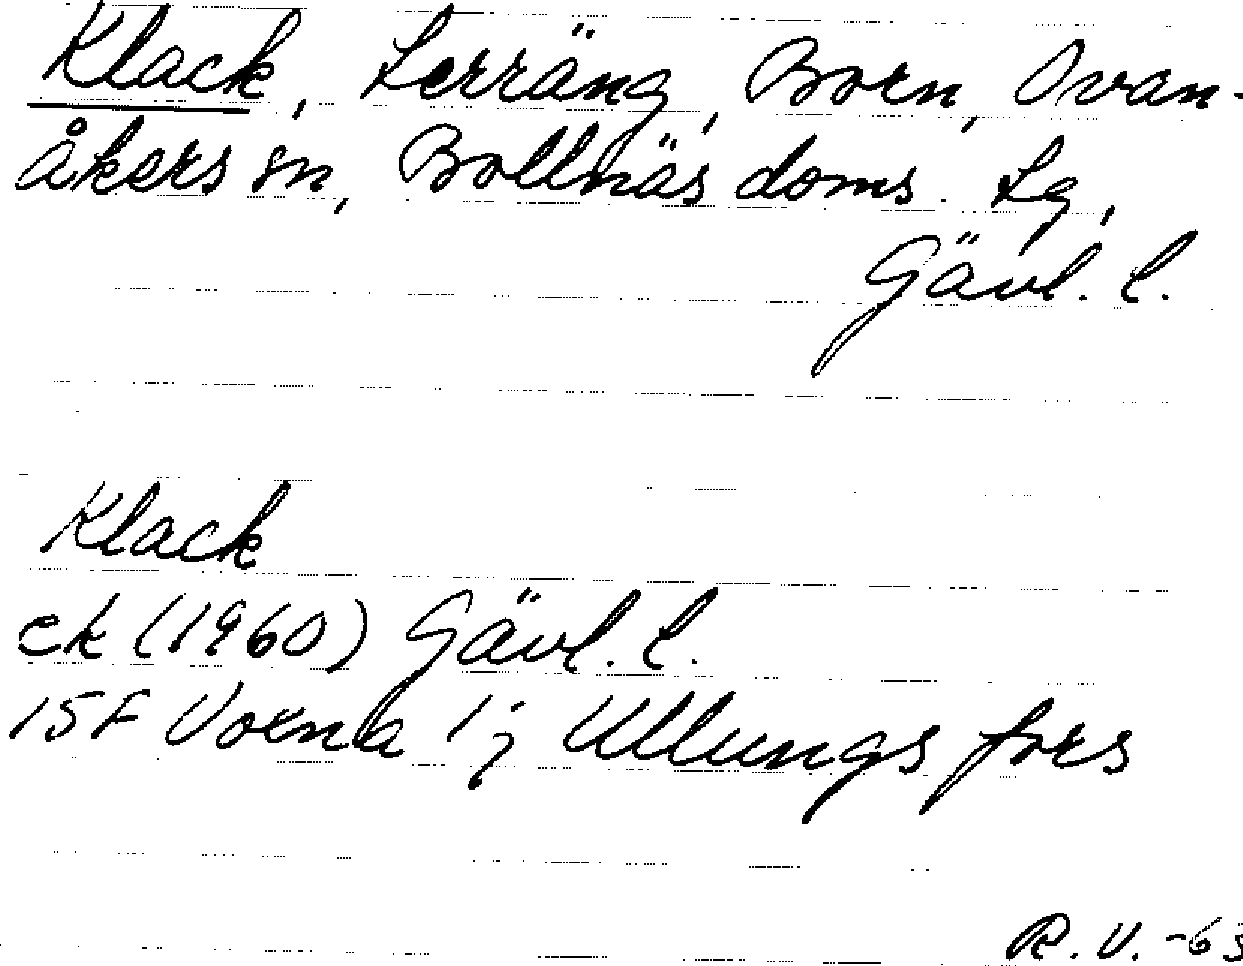 Klack, Lerräng, Born, Ovan-
åkers sn, Bollnäs doms. Lg,
Gävl. l.
Klack
ek (1960) Gävl. l.
15F Voxna 1; Ullungsfors
R.V. -63